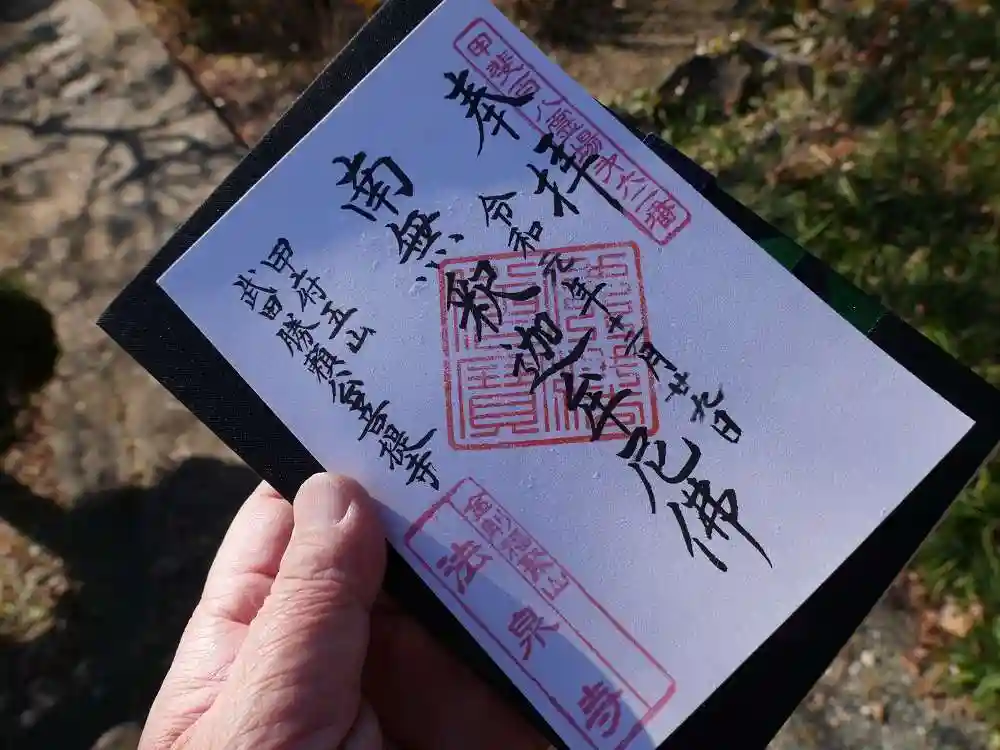 甲斐百八霊場六十二番
奉拝
令和元年十二月廿九日
南無釈迦牟尼佛
甲府五山
武田勝頼公菩提寺
法泉寺